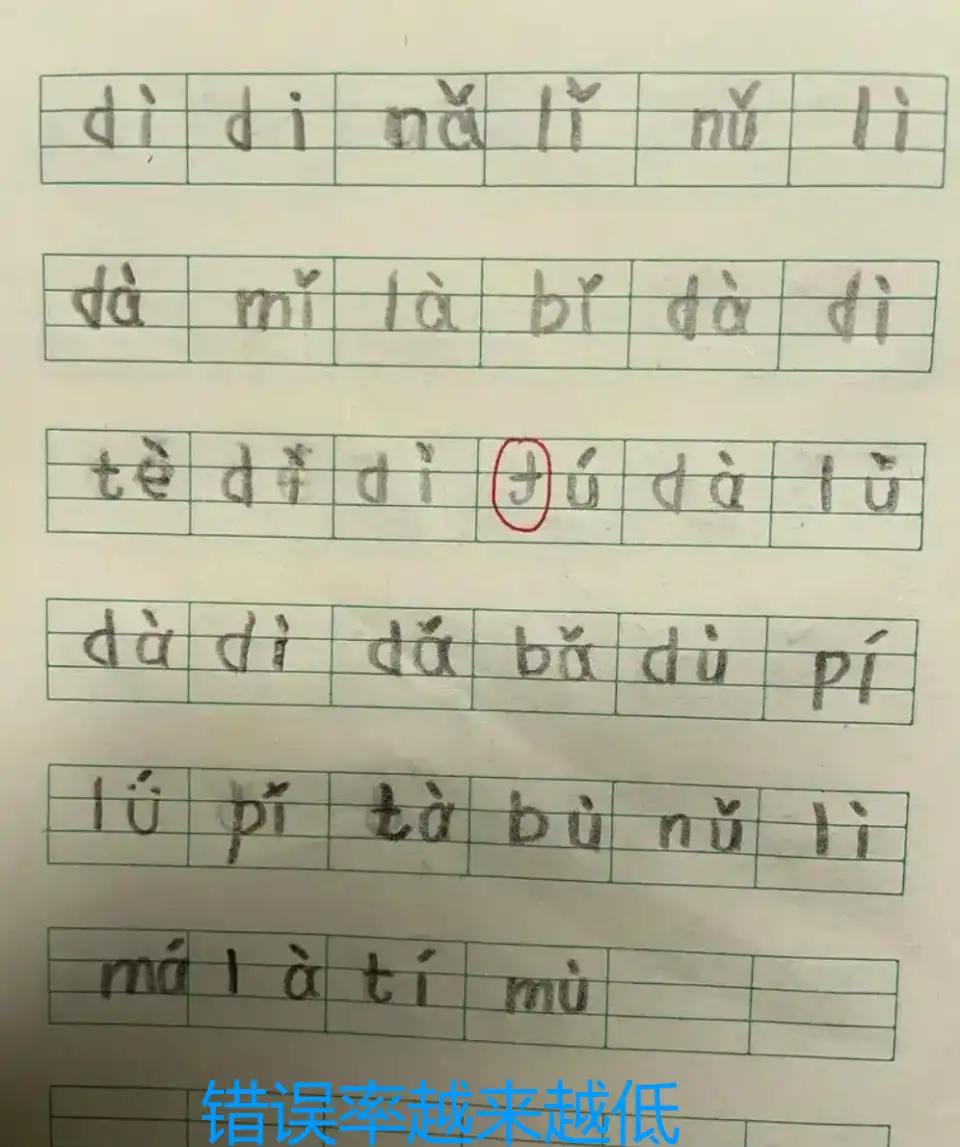 dì di nǎ lǐ nǔ lì
dà mǐ là bǐ dà dì
tè dǐ dì tú dà lù
dà dì dǎ bǎ dù pí
lǘ pí tà bù nǔ lì
má là tí mù
错误率越来越低